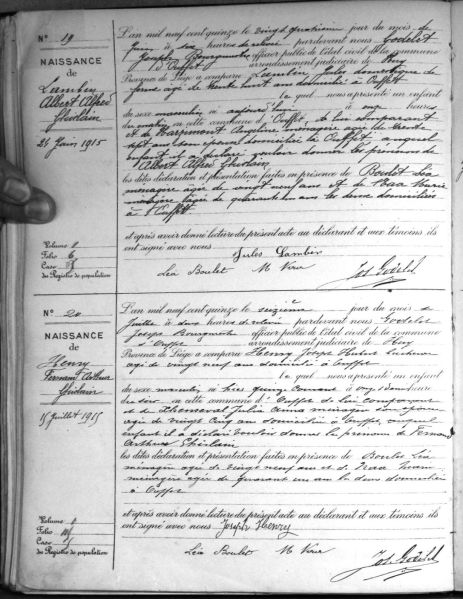 N° 19
NAISSANCE
de
Lambin
Albert Alfred
Ghislain
24 Juin 1915
Volume 1
Folio 6
Case
du Registre de population
L'an mil neuf cent quinze le vingt quatrième jour du mois de
Juin à six heures de relevée pardevant nous Godelet
Joseph Bourgmestre officier public de l'état civil de la commune
d'Ouffet arrondissement judiciaire de Huy
Province de Liége a comparu Lambin Jules domestique de
ferme âgé de trente huit ans domicilié à Ouffet
le quel nous a présenté un enfant
du sexe masculin né aujourd'hui à onze heures
du matin en cette commune d'Ouffet, de lui comparant
et de Harpmont Angeline ménagère âgée de trente
sept ans son épouse domiciliée à Ouffet auquel
enfant il a déclaré vouloir donner les prénoms de
Albert Alfred Ghislain
les dites déclaration et présentation faites en présence de Boulet Léa
ménagère âgée de vingt neuf ans et de
ménagère âgée de quarante un ans les deux domiciliées
à Ouffet
et après avoir donné lecture du présent acte au déclarant et aux témoins ils
ont signé avec nous
Jules Lambin
Léa Boulet M
N° 20
NAISSANCE
de
Henry
Fernand Arthur
Ghislain
15 Juillet 1915
Volume
Folio
Case
du Registre de population
L'an mil neuf cent quinze le seizième jour du mois de
Juillet à deux heures de relevée pardevant nous Godelet
Joseph Bourgmestre officier public de l'état civil de la commune
d'Ouffet arrondissement judiciaire de Huy
Province de Liége a comparu Henry Joseph Hubert
âgé de vingt neuf ans domicilié à Ouffet
le quel nous a présenté un enfant
du sexe masculin né hier quinze courant à onze heures
du soir en cette commune d'Ouffet de lui comparant
et de Julia Anna ménagère son épouse
âgée de vingt cinq ans domiciliée à Ouffet, auquel
enfant il a déclaré vouloir donner les prénoms de Fernand
Arthur Ghislain
les dites déclaration et présentation faites en présence de Boulet Léa
ménagère âgée de vingt neuf ans et de
ménagère âgée de quarante un ans les deux domiciliées
à Ouffet
et après avoir donné lecture du présent acte au déclarant et aux témoins ils
ont signé avec nous Joseph Henry
Léa Boulet M